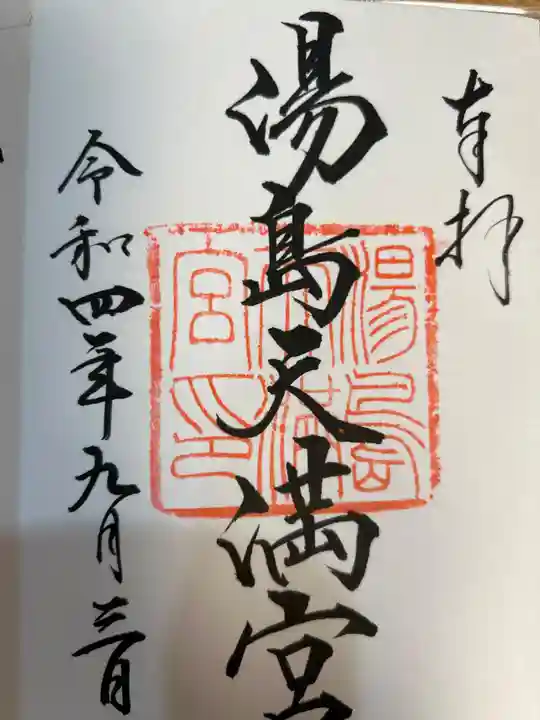 奉拝
湯島天満宮
湯島天満宮印
令和四年九月三日